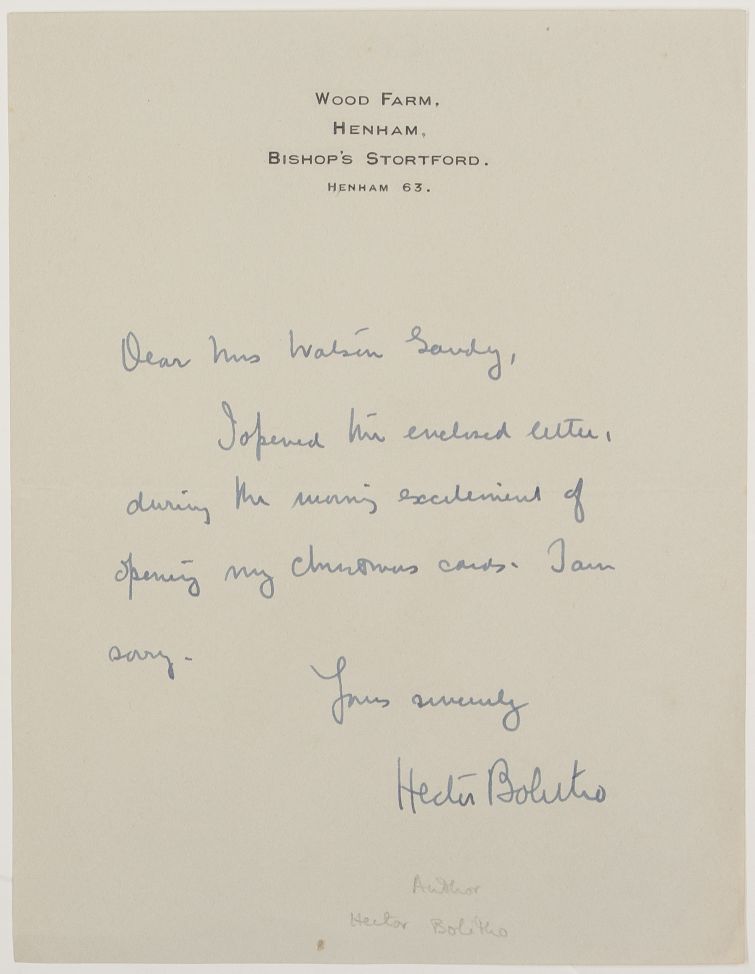 WOOD FARM,
HENHAM,
BISHOP'S STORTFORD.
HENHAM 63.
Dear Mrs Watson Gandy,
I opened the enclosed letter,
during the morning excitement of
opening my Christmas cards. I am
sorry.
Yours sincerely
Hector Bolitho
Author
Hector Bolitho